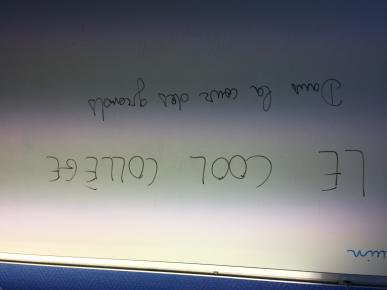 LE COOL COLLÈGE
Dans la cour des grands